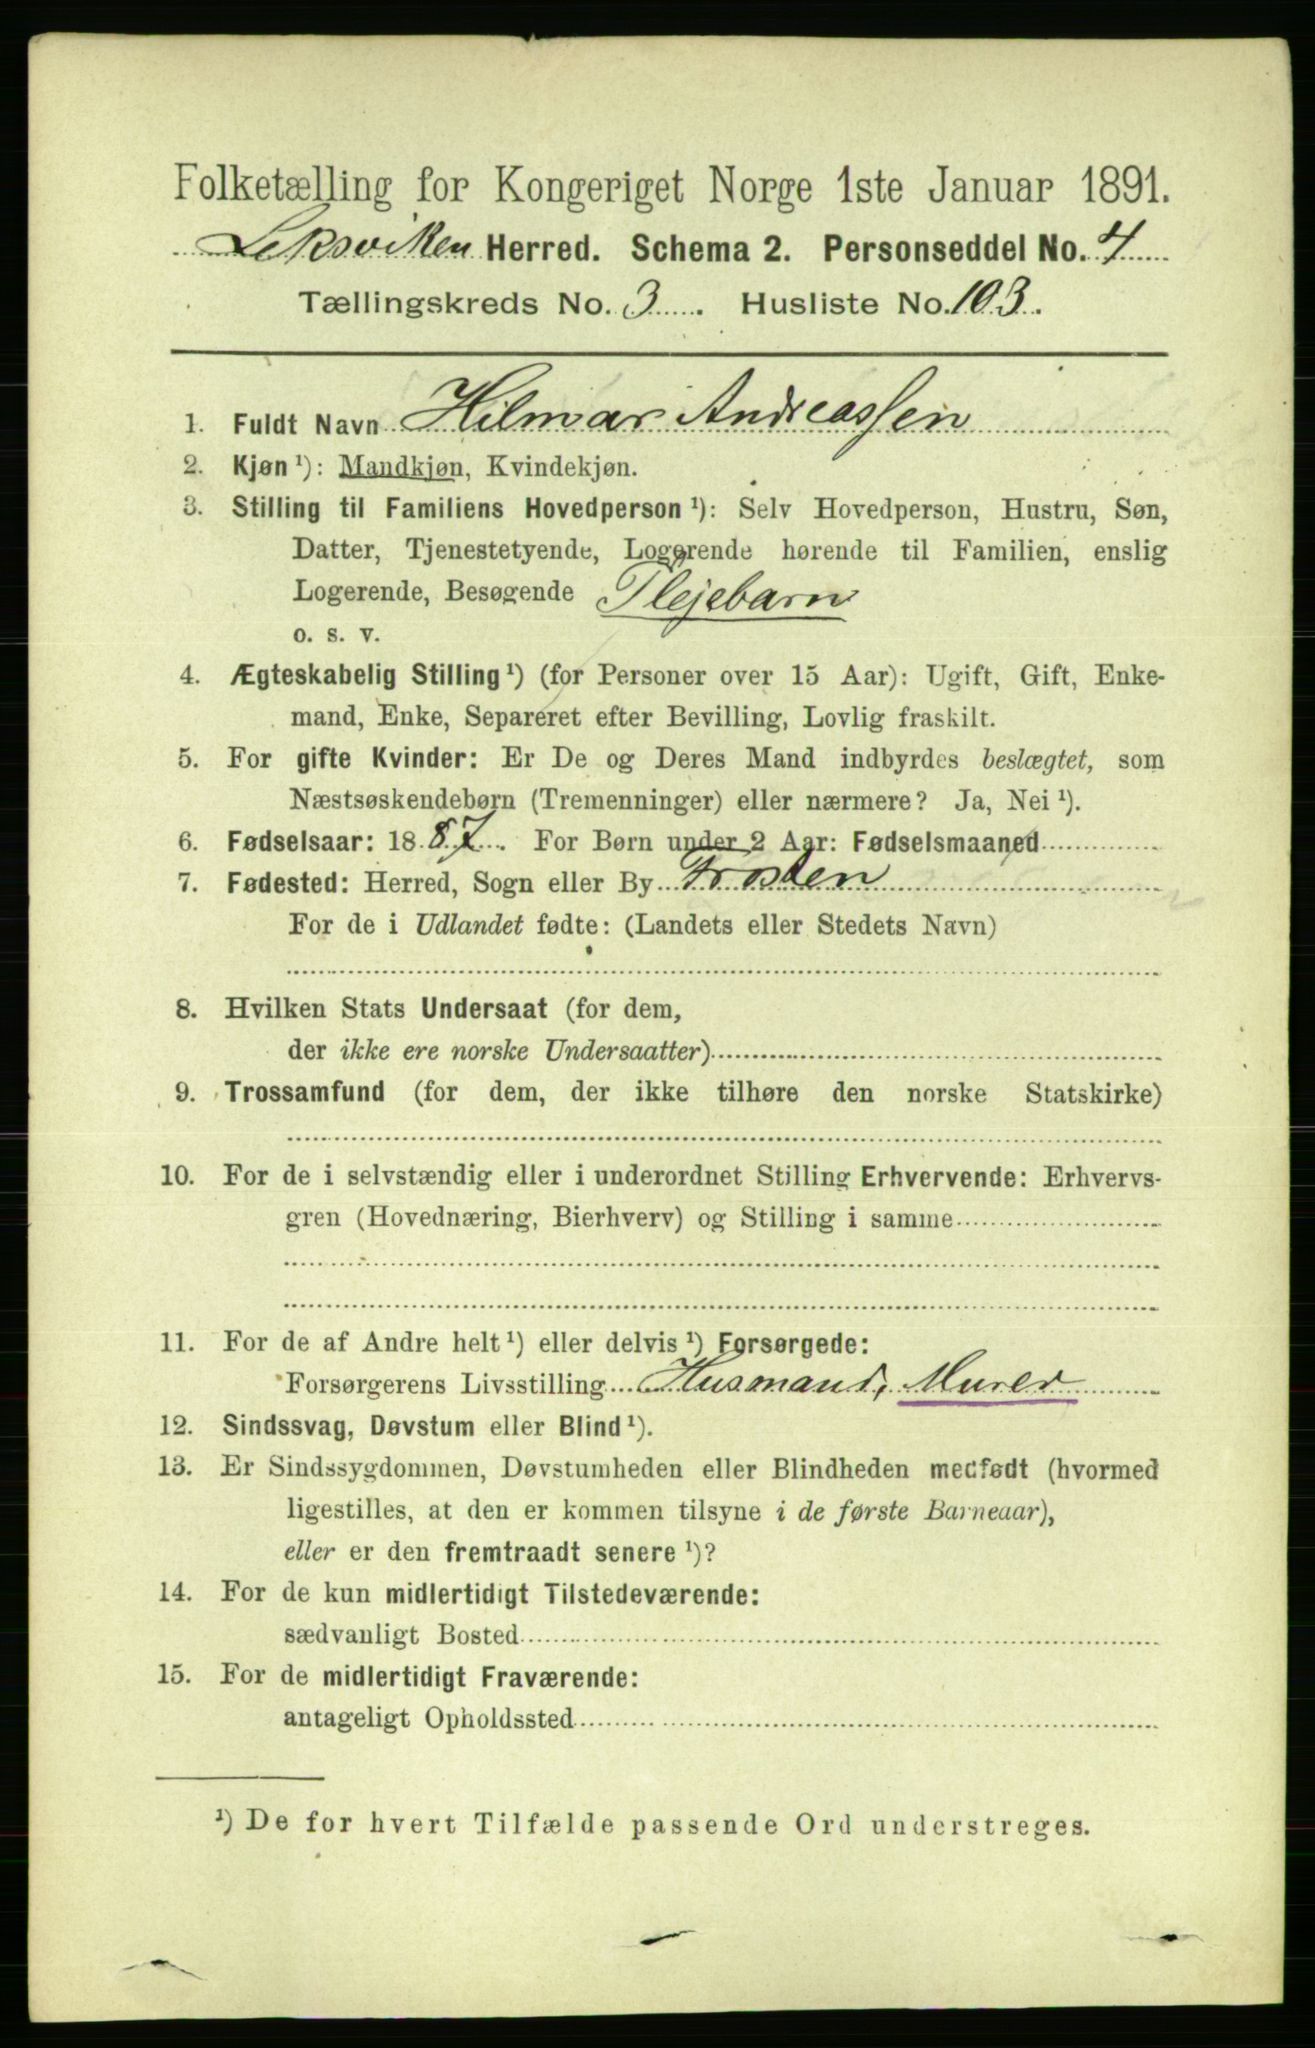 Folketælling for Kongeriget Norge 1ste Januar 1891.
Leksviken Herred. Schema 2. Personseddel No. 4
Tællingskreds No. 3. Husliste No. 103.
1. Fuldt Navn Hilmar Andreassen
2. Kjøn ¹): Mandkjøn, Kvindekjøn.
3. Stilling til Familiens Hovedperson ¹): Selv Hovedperson, Hustru, Søn,
Datter, Tjenestetyende, Logerende hørende til Familien, enslig
Logerende, Besøgende Plejebarn
o. s. v.
4. Ægteskabelig Stilling ¹) (for Personer over 15 Aar): Ugift, Gift, Enke-
mand, Enke, Separeret efter Bevilling, Lovlig fraskilt.
5. For gifte Kvinder: Er De og Deres Mand indbyrdes beslægtet, som
Næstsøskendebørn (Tremenninger) eller nærmere? Ja, Nei ¹).
6. Fødselsaar: 1887. For Børn under 2 Aar: Fødselsmaaned
7. Fødested: Herred, Sogn eller By Frosten
For de i Udlandet fødte: (Landets eller Stedets Navn)
8. Hvilken Stats Undersaat (for dem,
der ikke ere norske Undersaatter)
9. Trossamfund (for dem, der ikke tilhøre den norske Statskirke)
10. For de i selvstændig eller i underordnet Stilling Erhvervende: Erhvervs-
gren (Hovednæring, Bierhverv) og Stilling i samme
11. For de af Andre helt ¹) eller delvis ¹) Forsørgede:
Forsørgerens Livsstilling Husmand, Murer
12. Sindssvag, Døvstum eller Blind ¹).
13. Er Sindssygdommen, Døvstumheden eller Blindheden medfødt (hvormed
ligestilles, at den er kommen tilsyne i de første Barneaar),
eller er den fremtraadt senere ¹)?
14. For de kun midlertidigt Tilstedeværende:
sædvanligt Bosted
15. For de midlertidigt Fraværende:
antageligt Opholdssted
¹) De for hvert Tilfælde passende Ord understreges.